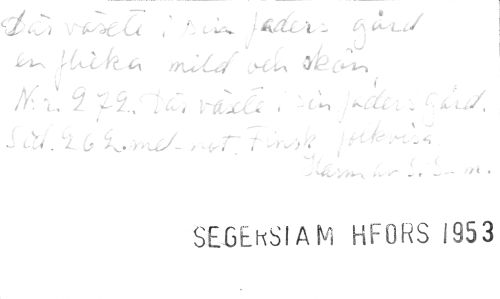 Där växte i sin faders gård
en flicka mild och skön
N:r. 272. Där växte i sin faders gård.
Sid. 262. med not. Finsk folkvisa.
Harm. av
SEGERSTAM HFORS 1953